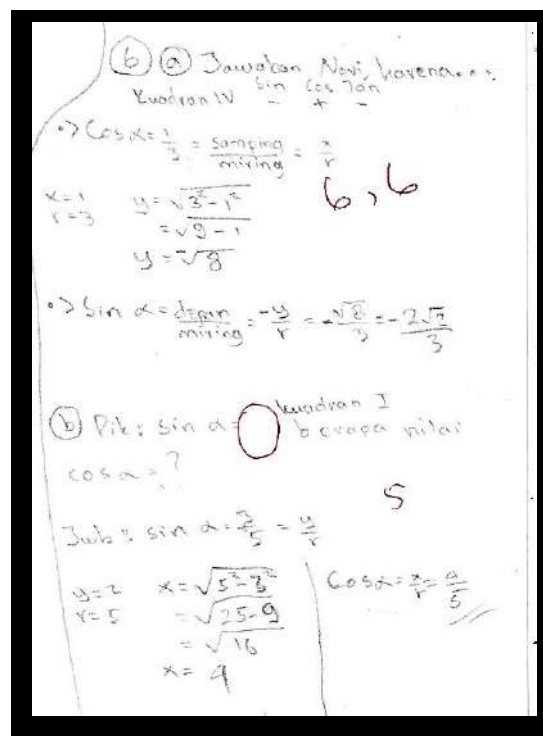 6 a Jawaban Novi, karena....
sin cos Tan
Kuadran IV - + -
•> Cos α = 1/3 = samping/miring = x/r
x = 1
r = 3
y = √3² - 1²
= √9 - 1
y = √8
6,6
•> Sin α = depan/miring = -y/r = -√8/3 = -2√2/3
b Dik: sin α = kuadran I berapa nilai
cos α = ?
5
Jwb: sin α = 3/5 = y/r
r = 5
x = √5² - 3²
= √25-9
= √16
x = 4
Cos α = x/r = 4/5